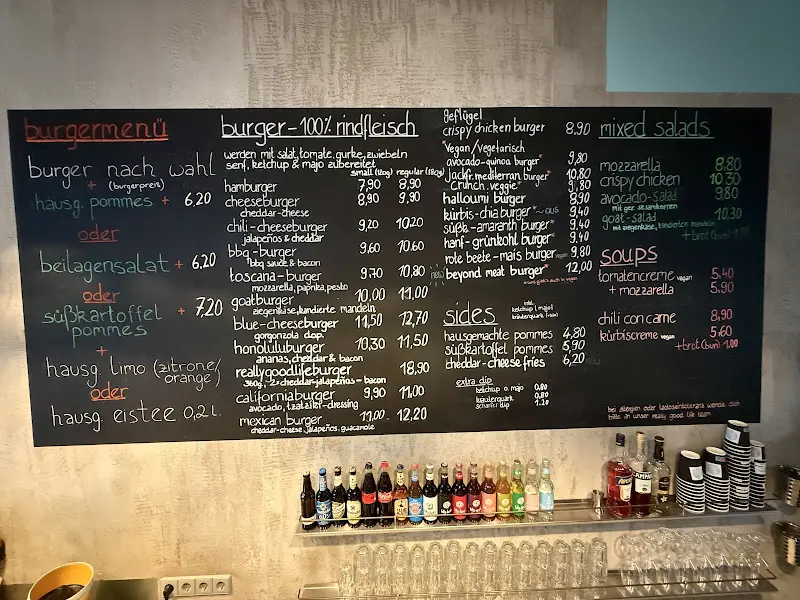 burgermenü
burger nach wahl
+ (burgerpreis)
hausg. pommes + 6,20
oder
beilagensalat + 6,20
oder
süßkartoffel + 7,20
pommes
+
hausg. limo (zitrone/
orange)
oder
hausg. eistee 0,2l.
burger-100% rindfleisch
werden mit salat, tomate, gurke, zwiebeln
senf, ketchup & majo zubereitet
small (120g) regular (180g)
hamburger 7,90 8,90
cheeseburger 8,90 9,90
cheddar-cheese
chili-cheeseburger 9,20 10,20
jalapeños & cheddar
bbq-burger 9,60 10,60
bbq sauce & bacon
toscana-burger 9,70 10,80
mozzarella, paprika, pesto
goatburger 10,00 11,00
ziegenkäse, kandierte mandeln
blue-cheeseburger 11,50 12,70
gorgonzola dop.
honoluluburger 10,30 11,50
ananas, cheddar & bacon
reallygoodlifeburger 18,90
360g, 2x cheddar-jalapeños-bacon
californiaburger 9,90 11,00
avocado, tzatziki-dressing
mexican burger 11,00 12,20
cheddar-cheese, jalapeños, guacamole
geflügel
crispy chicken burger 8.90
vegan/vegetarisch
avocado-quinoa burger* 9,80
jackfr. mediterran burger* 10,80
"crunch. veggie" 9,80
halloumi burger 8,90
kürbis-chia burger* 9,40
süßk.-amaranth burger* 9,40
hanf-grünkohl burger* 9.40
rote beete-mais burger vegan 9,80
new beyond meat burger* 12,00
sides
inkl.
ketchup, majo,
hausgemachte pommes 4,80
süßkartoffel pommes 5,90
cheddar-cheese fries 6,20
extra dip
ketchup o. majo 0.80
kräuterquark 0.80
scharfer dip 1.20
mixed salads
mozzarella 8.80
crispy chicken 10.30
avocado-salad 9.80
mit ger. sesamkernen
goat-salad 10.30
mit ziegenkäse, kandierten mandeln
+brot (bun) 1.00
soups
tomatencreme vegan 5.40
+ mozzarella 5.90
chili con carne 8,90
kürbiscreme vegan 5,60
+brot (bun) 1,00
bei allergien oder laktoseintoleranz wende dich
bitte an unser really good life team